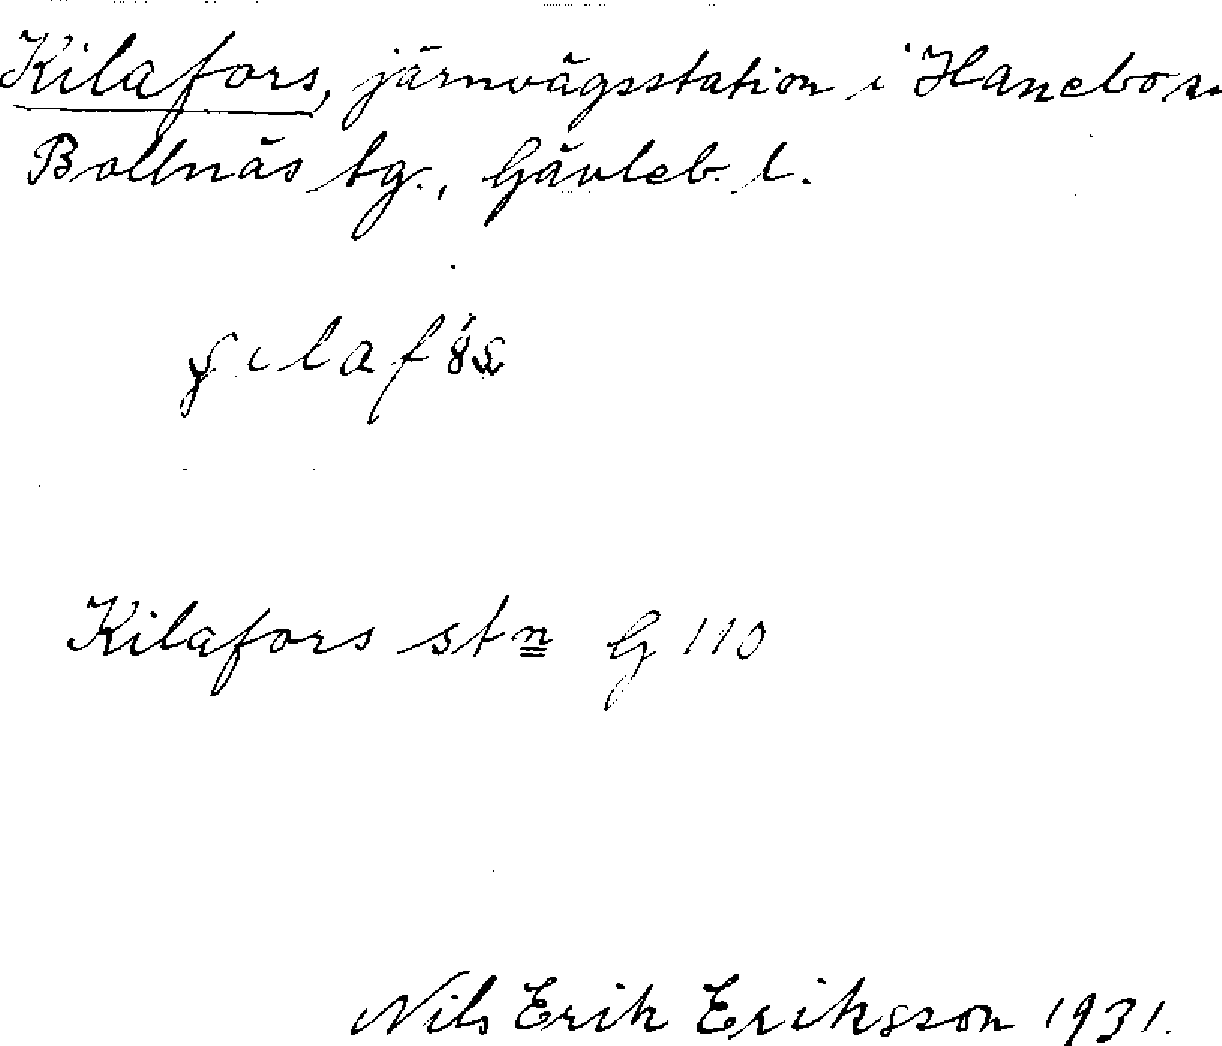 Kilafors, järnvägsstation i Hanebo sn.
Bollnäs tg., Gävleb. l.
Kilafors stn G 110
Nils Erik Eriksson 1931.